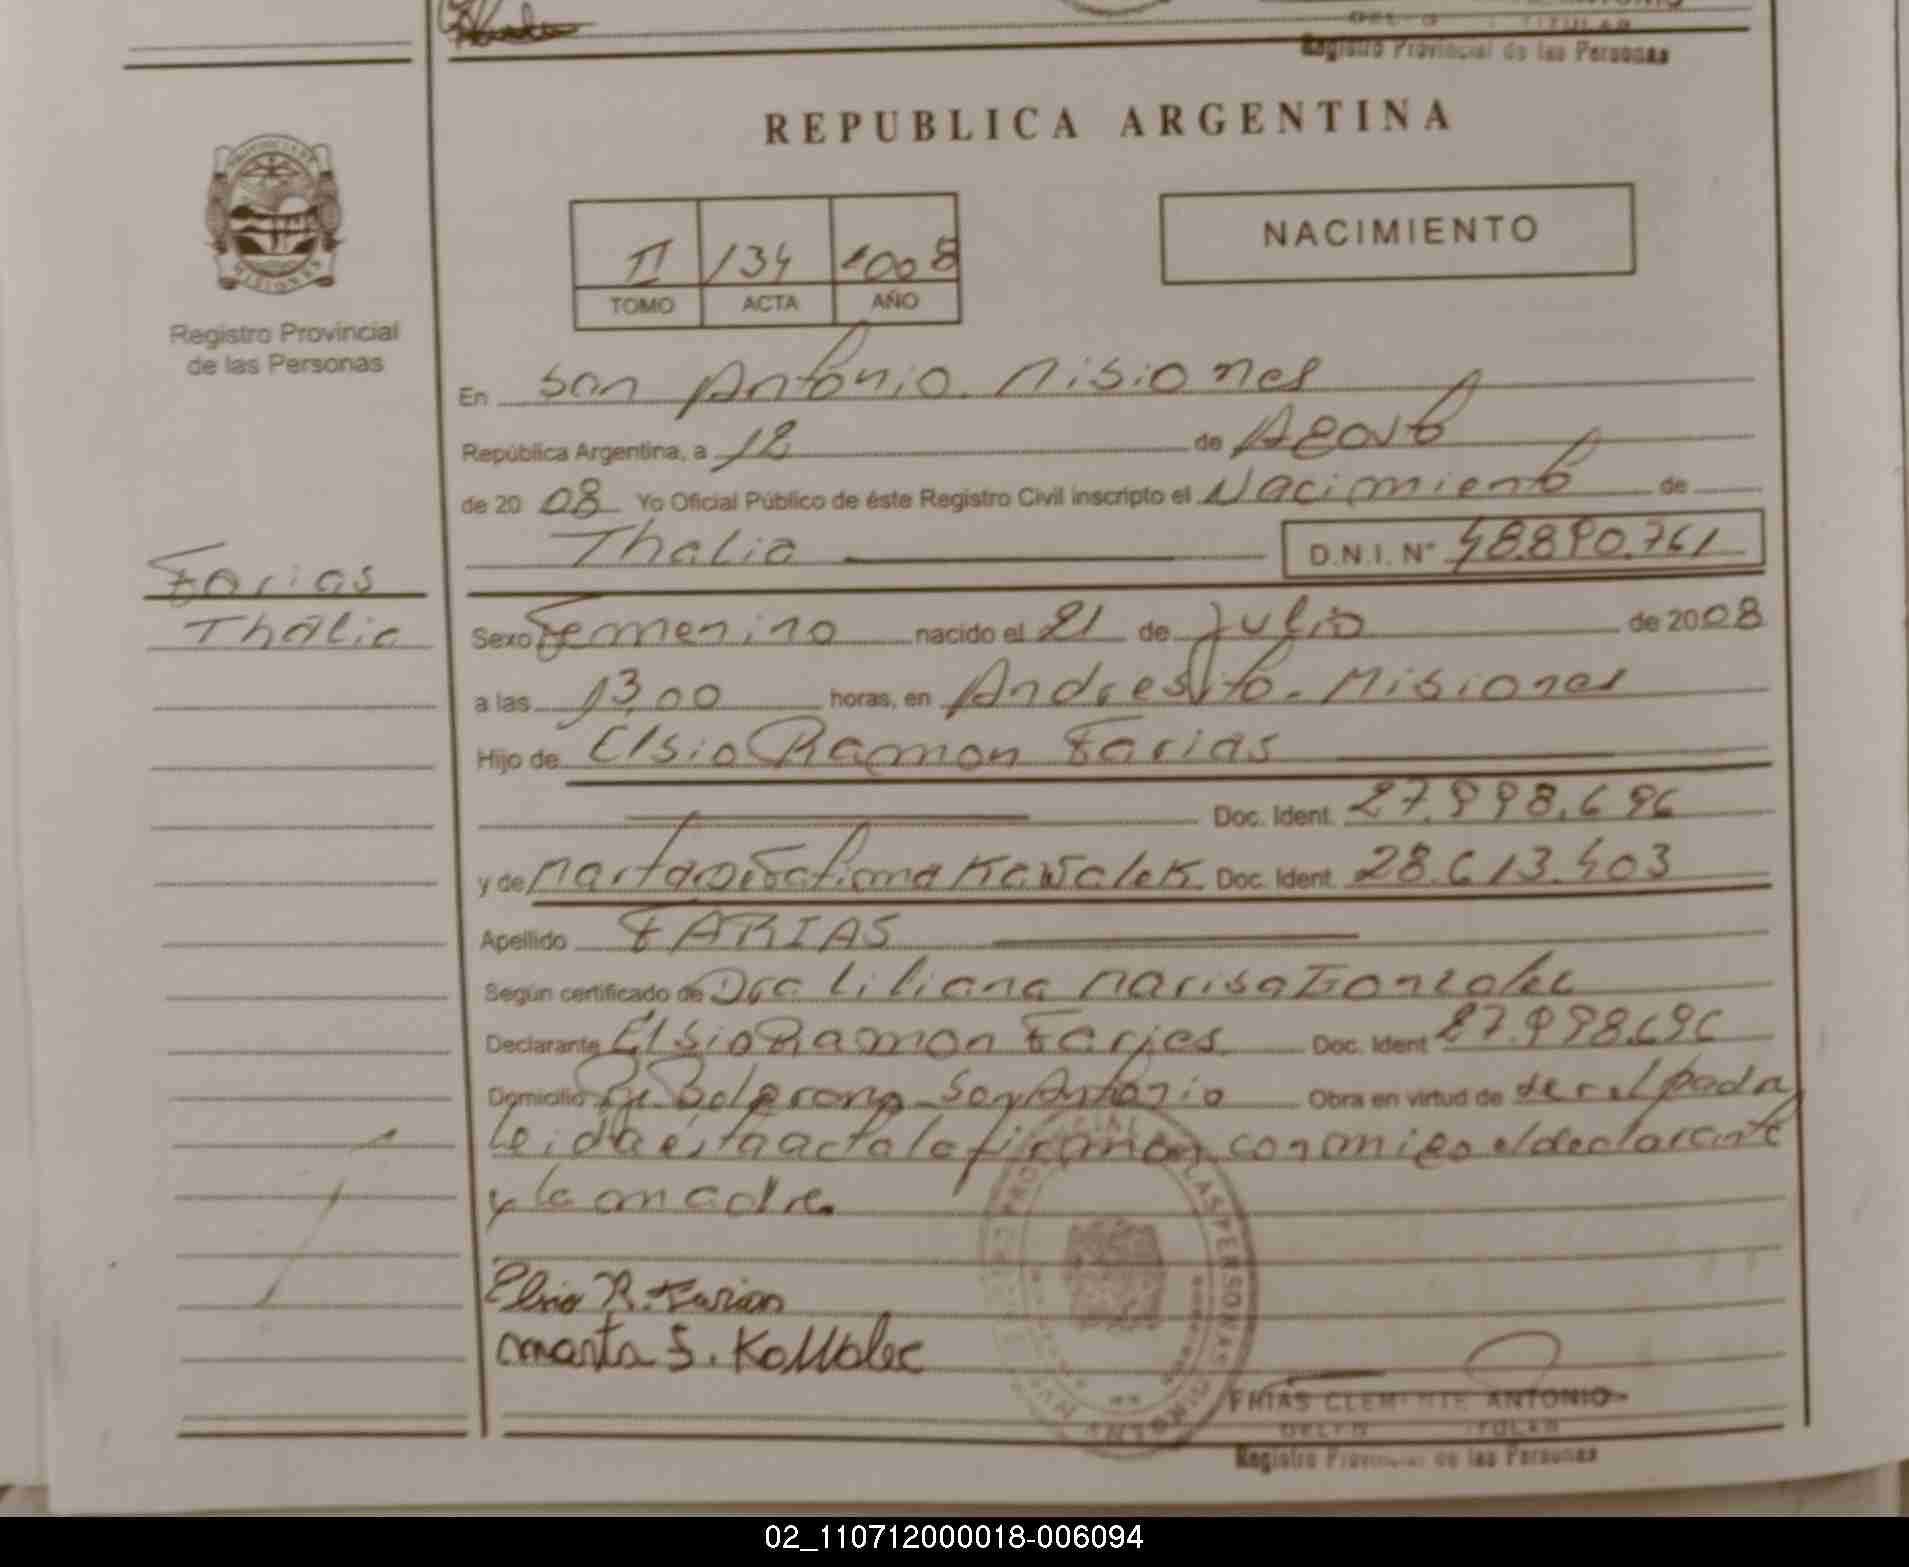 Registro Provincial de las Personas
REPUBLICA ARGENTINA
PROVINCIA DE
MISIONES
Registro Provincial
de las Personas
II 134 2008
TOMO ACTA AÑO
NACIMIENTO
En San Antonio. Misiones
República Argentina, a 12 de Agosto
de 2008 Yo Oficial Público de éste Registro Civil inscripto el Nacimiento de
Thalia D.N.I. N° 48.890.761
Farias
Thalia
Sexo Femenino nacido el 21 de Julio de 2008
a las 13,00 horas, en Andresito - Misiones
Hijo de Elsio Ramon Farias
Doc. Ident. 27.998.696
y de Marta Fatima Kawalek Doc. Ident. 28.613.403
Apellido FARIAS
Según certificado de Dra Liliana Marisa Gonzalez
Declarante Elsio Ramon Farias Doc. Ident 27.998.696
Domicilio San Antonio Obra en virtud de
leida ésta acta la firman conmigo el declarante
y la madre.
Elsio R. Farias
marta F. Kowalec
FRIAS CLEMENTE ANTONIO
Registro Provincial de las Personas
02_110712000018-006094